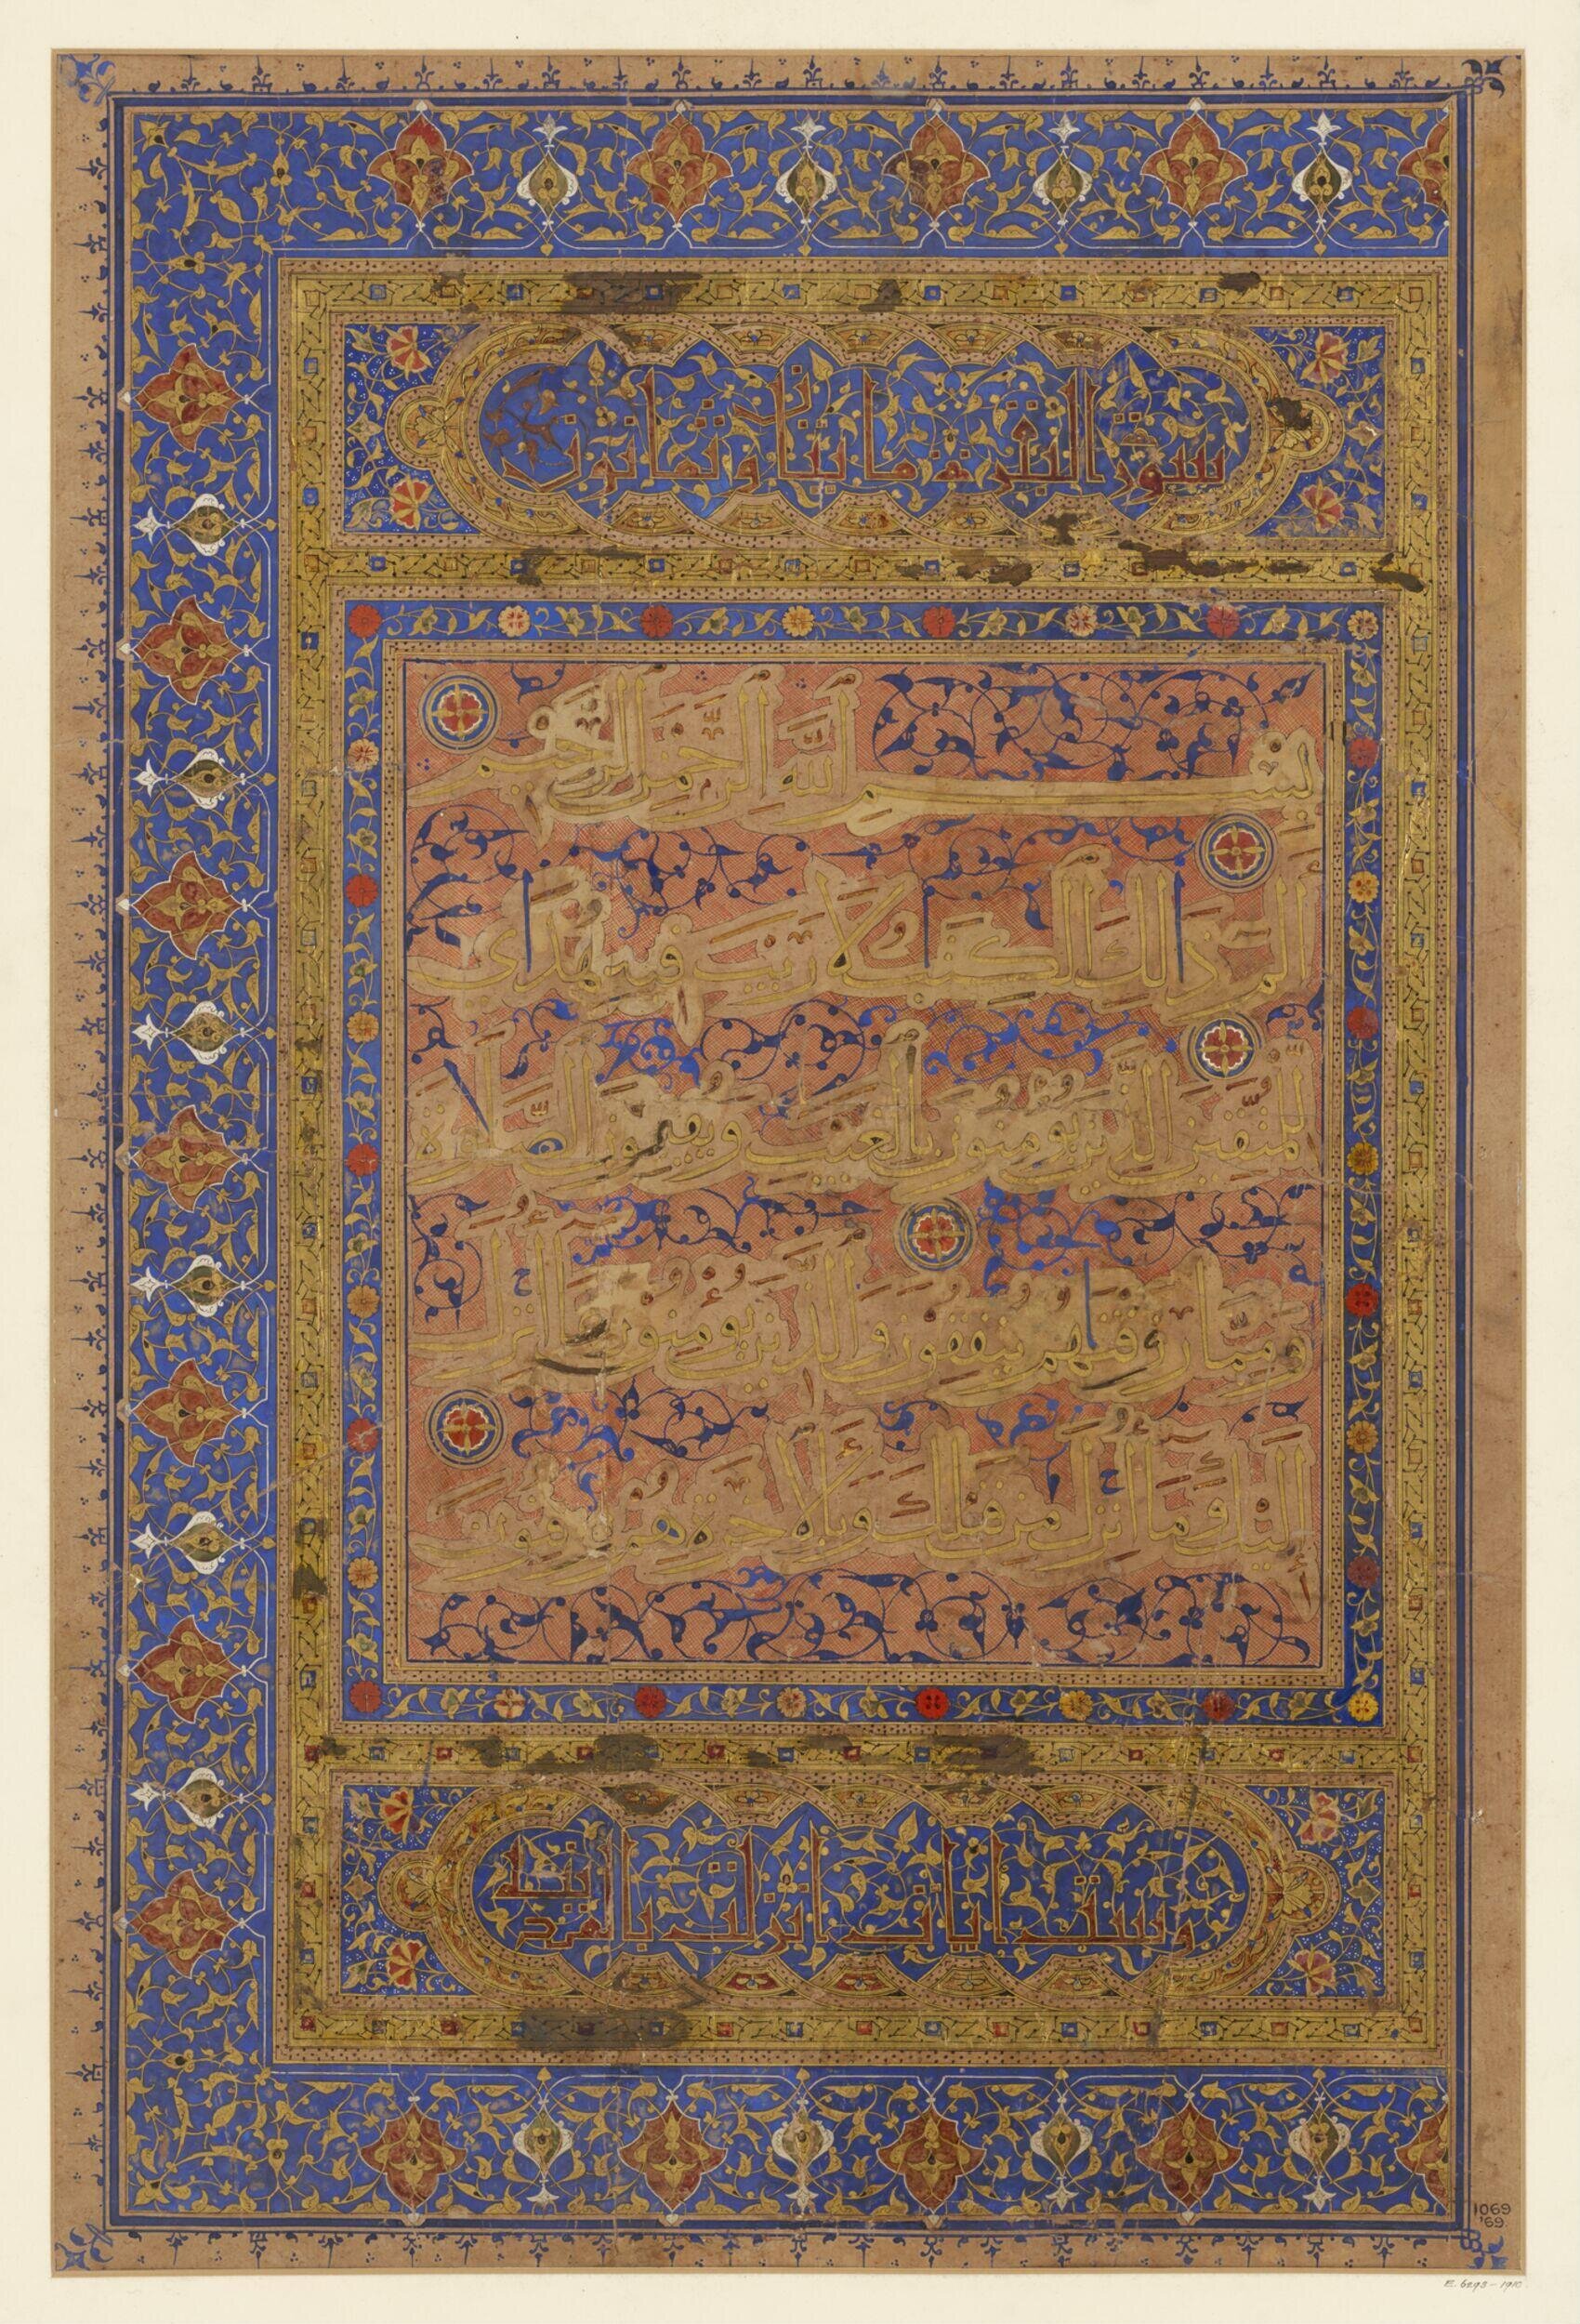 سورة البقرة مايتان وثمانون
بِسْمِ اللَّهِ الرَّحْمَٰنِ الرَّحِيمِ
الم ذَٰلِكَ الْكِتَٰبُ لَا رَيْبَ فِيهِ هُدًى
لِلْمُتَّقِينَ الَّذِينَ يُؤْمِنُونَ بِالْغَيْبِ وَيُقِيمُونَ الصَّلَوٰةَ
وَمِمَّا رَزَقْنَٰهُمْ يُنْفِقُونَ وَالَّذِينَ يُؤْمِنُونَ بِمَا أُنْزِلَ
إِلَيْكَ وَمَا أُنْزِلَ مِنْ قَبْلِكَ وَبِالْآخِرَةِ هُمْ يُوقِنُونَ
وست ايات انزلت بالمدينة
1069
'69.
E.6293-1910